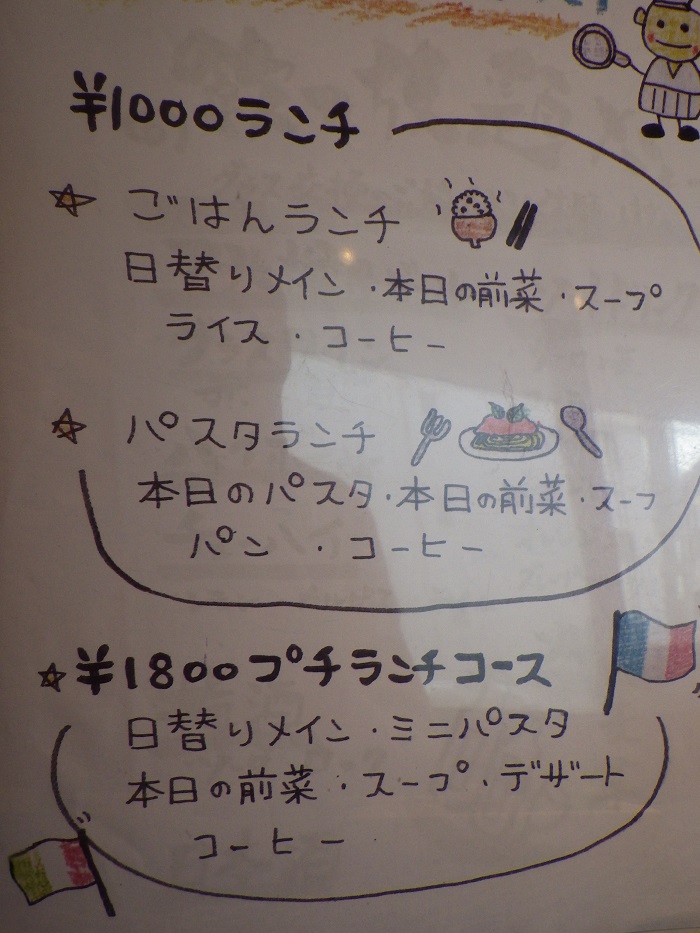 ¥1000ランチ
ごはんランチ
日替りメイン・本日の前菜・スープ
ライス・コーヒー
パスタランチ
本日のパスタ・本日の前菜・スープ
パン・コーヒー
¥1800プチランチコース
日替りメイン・ミニパスタ
本日の前菜・スープ・デザート
コーヒー